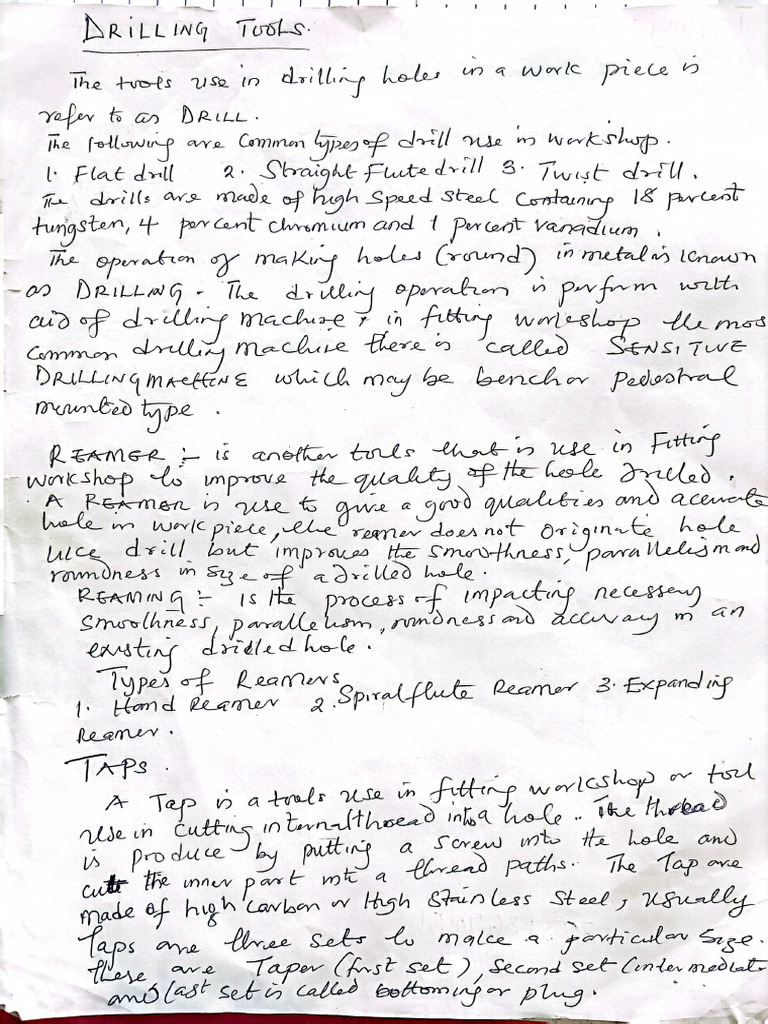 DRILLING TOOLS.
The tools use in drilling holes in a work piece is
refer to as DRILL.
The following are Common types of drill use in workshop.
1. Flat drill 2. Straight Flute drill 3. Twist drill.
The drills are made of high Speed Steel Containing 18 percent
tungsten, 4 percent chromium and 1 percent vanadium.
The operation of making holes (round) in metal is known
as DRILLING - The drilling operation is perform with
aid of drilling machine, in fitting workshop the mos
Common drilling machine there is called SENSITIVE
DRILLING MACHINE which may be bench or pedestral
mounted type.
REAMER :- is another tools that is use in Fitting
workshop to improve the quality of the hole drilled.
A REAMER is use to give a good qualities and accurate
hole in work piece, the reamer does not originate hole
like drill but improves the smoothness, parallelism and
roundness in size of a drilled hole.
REAMING :- Is the process of impacting necessery
Smoothness, parallelism, roundness and accuracy in an
existing drilled hole.
Types of Reamers
1. Hand Reamer 2. Spiral flute Reamer 3. Expanding
Reamer.
TAPS.
A Tap is a tools use in fitting workshop or tool
use in cutting internal thread into a hole.. The thread
is produce by putting a screw into the hole and
cut the inner part into a thread paths. The Tap are
made of high Carbon or High Stainless Steel, usually
Taps are three sets to make a particular Size.
these are Taper (first set), Second set (intermediate
and last set is called bottoming or plug.